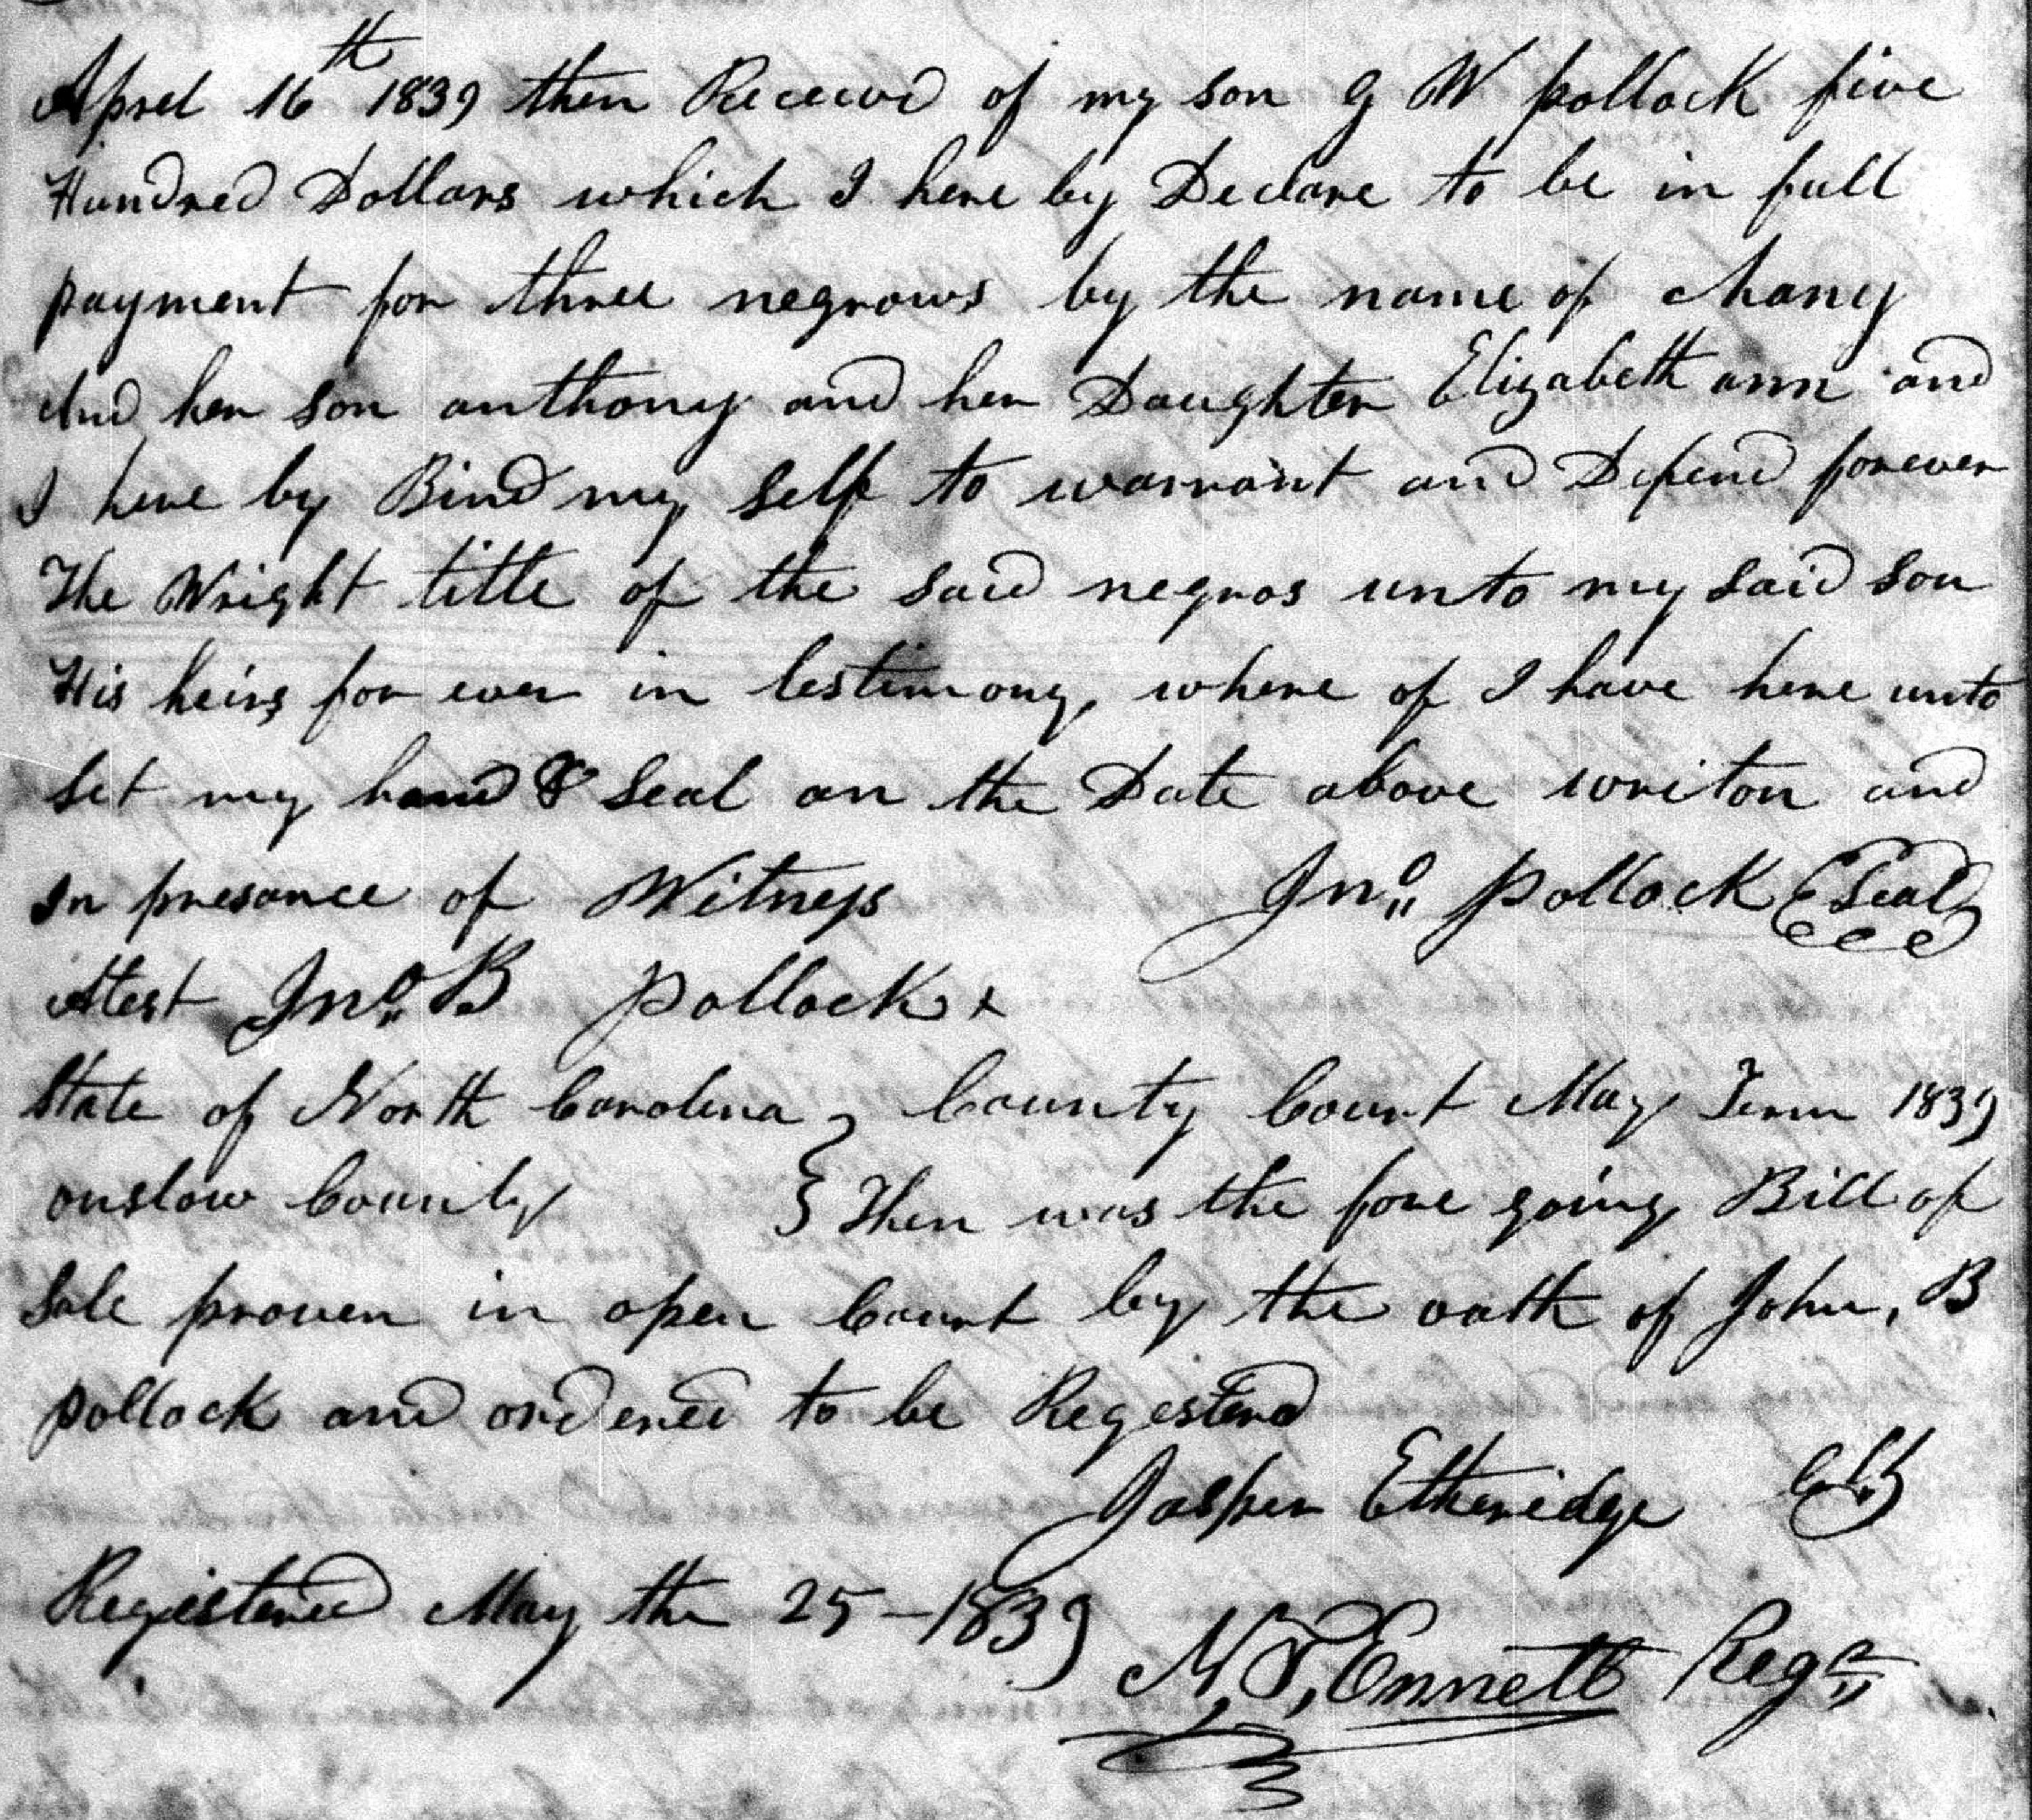 Aprel 16th 1839 then Received of my son G W pollock five
Hundred Dollars which I here by Declare to be in full
payment for three negrows by the name of Chany
And her son anthony and her Daughter Elizabeth ann and
I here by Bind my self to warrant and Defend forever
The Wright title of the said negros unto my said son
His heirs for ever in testimony where of I have here unto
Set my hand & Seal on the Date above writon and
In presance of Witness Jno. pollock Seal
Atest Jno. B pollock x
State of North Carolina } County Court May Term 1839
onslow County } Then was the fore going Bill of
Sale proven in open Court by the oath of John, B
pollock and ordered to be Registerd
Jasper Etheridge Clk
Registered May the 25 - 1839
N. T. Ennett Regr